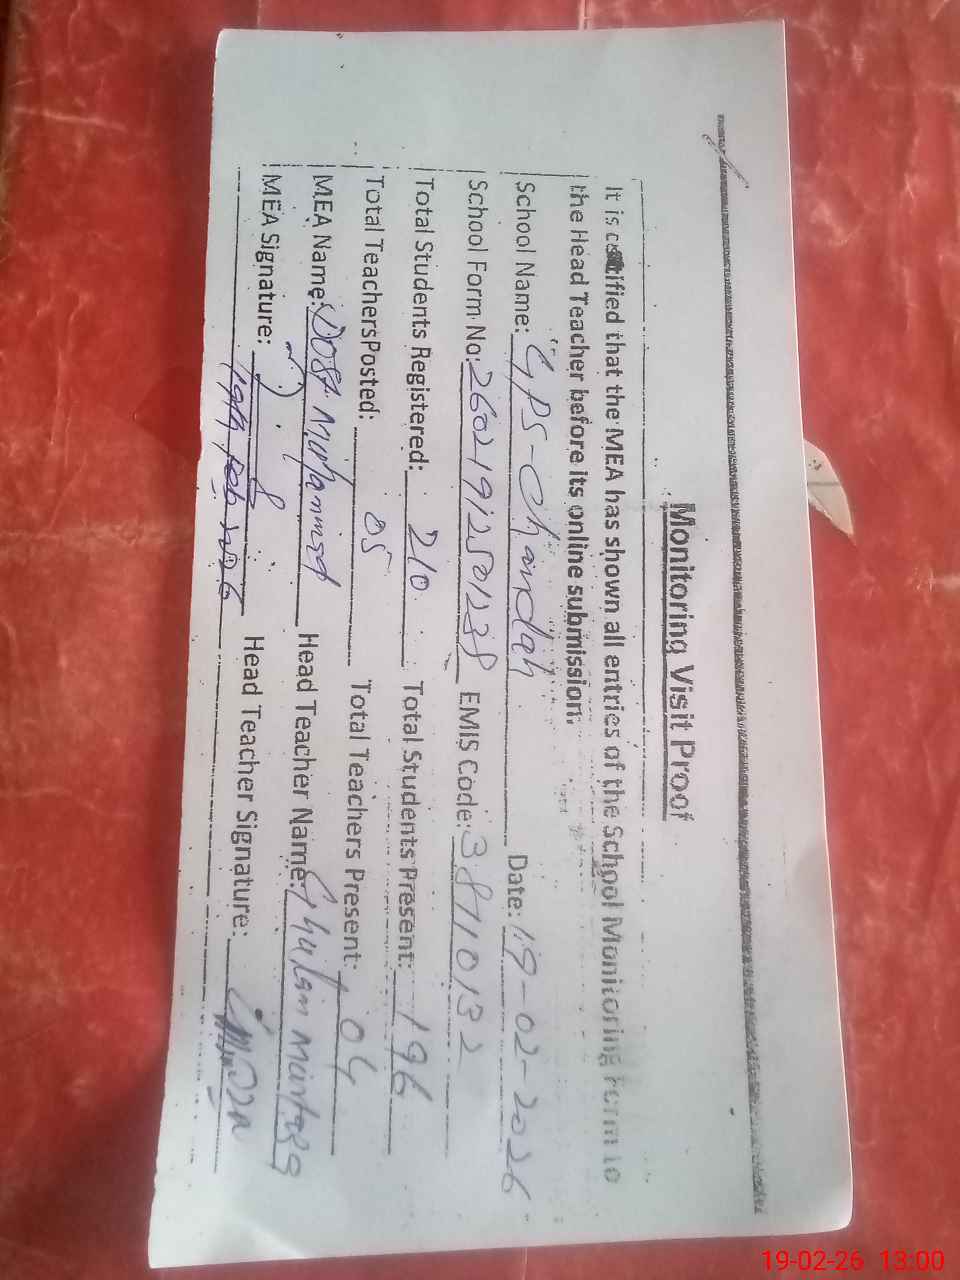 Monitoring Visit Proof
It is certified that the MEA has shown all entries of the School Monitoring Form to
the Head Teacher before its online submission.
School Name: GPS-Chandah Date: 19-02-2026
School Form No: 26021912501238 EMIS Code: 38110132
Total Students Registered: 210 Total Students Present: 196
Total Teachers Posted: 05 Total Teachers Present: 04
MEA Name: Dost Muhammad Head Teacher Name: Ghulam Murtaza
MEA Signature: Head Teacher Signature:
19th Feb 2026
19-02-26 13:00